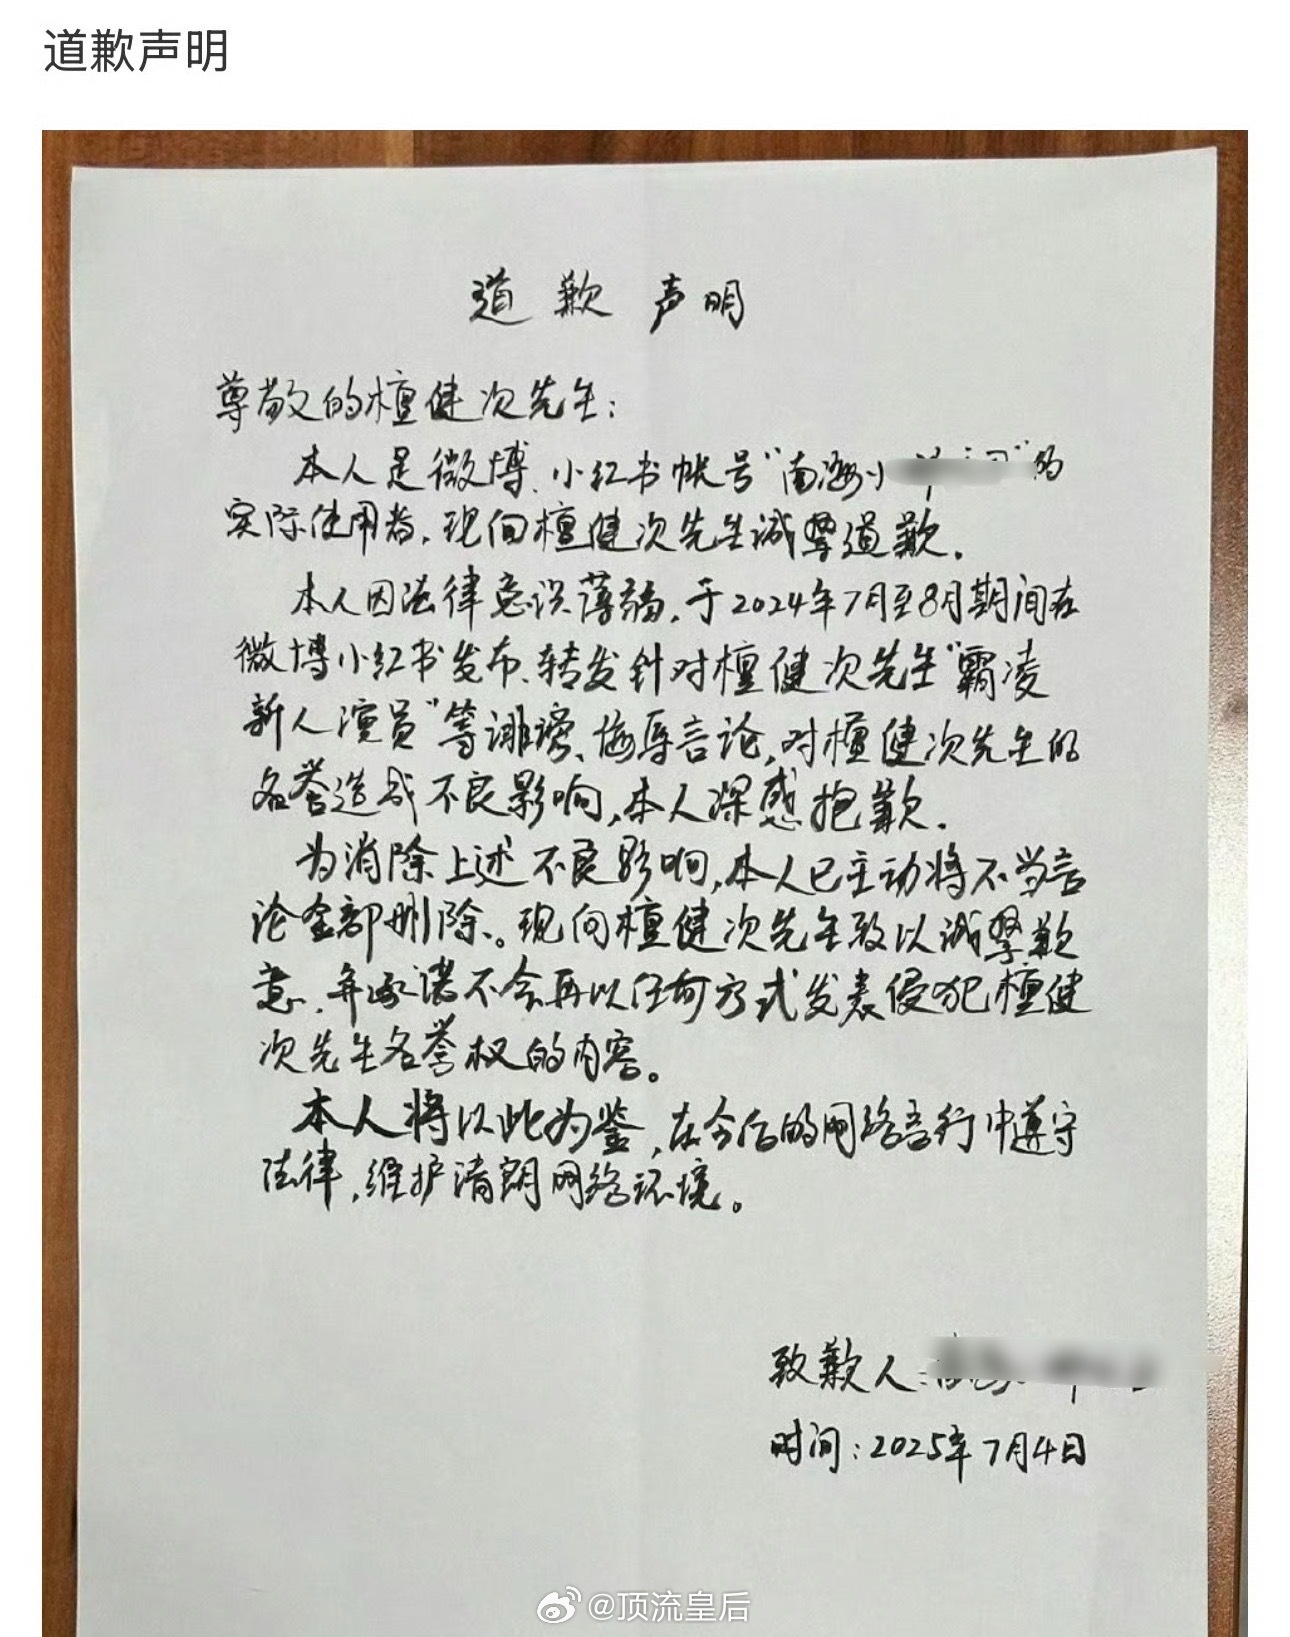 道歉声明
道歉声明
尊敬的檀健次先生：
本人是微博、小红书帐号“南海小”的
实际使用者，现向檀健次先生诚挚道歉。
本人因法律意识薄弱，于2024年7月至8月期间在
微博小红书发布、转发针对檀健次先生“霸凌
新人演员”等诽谤、侮辱言论，对檀健次先生的
名誉造成不良影响，本人深感抱歉。
为消除上述不良影响，本人已主动将不当言
论全部删除。现向檀健次先生致以诚挚歉
意，并承诺不会再以任何方式发表侵犯檀健
次先生名誉权的内容。
本人将以此为鉴，在今后的网络言行中遵守
法律，维护清朗网络环境。
致歉人：
时间：2025年7月4日
@顶流皇后